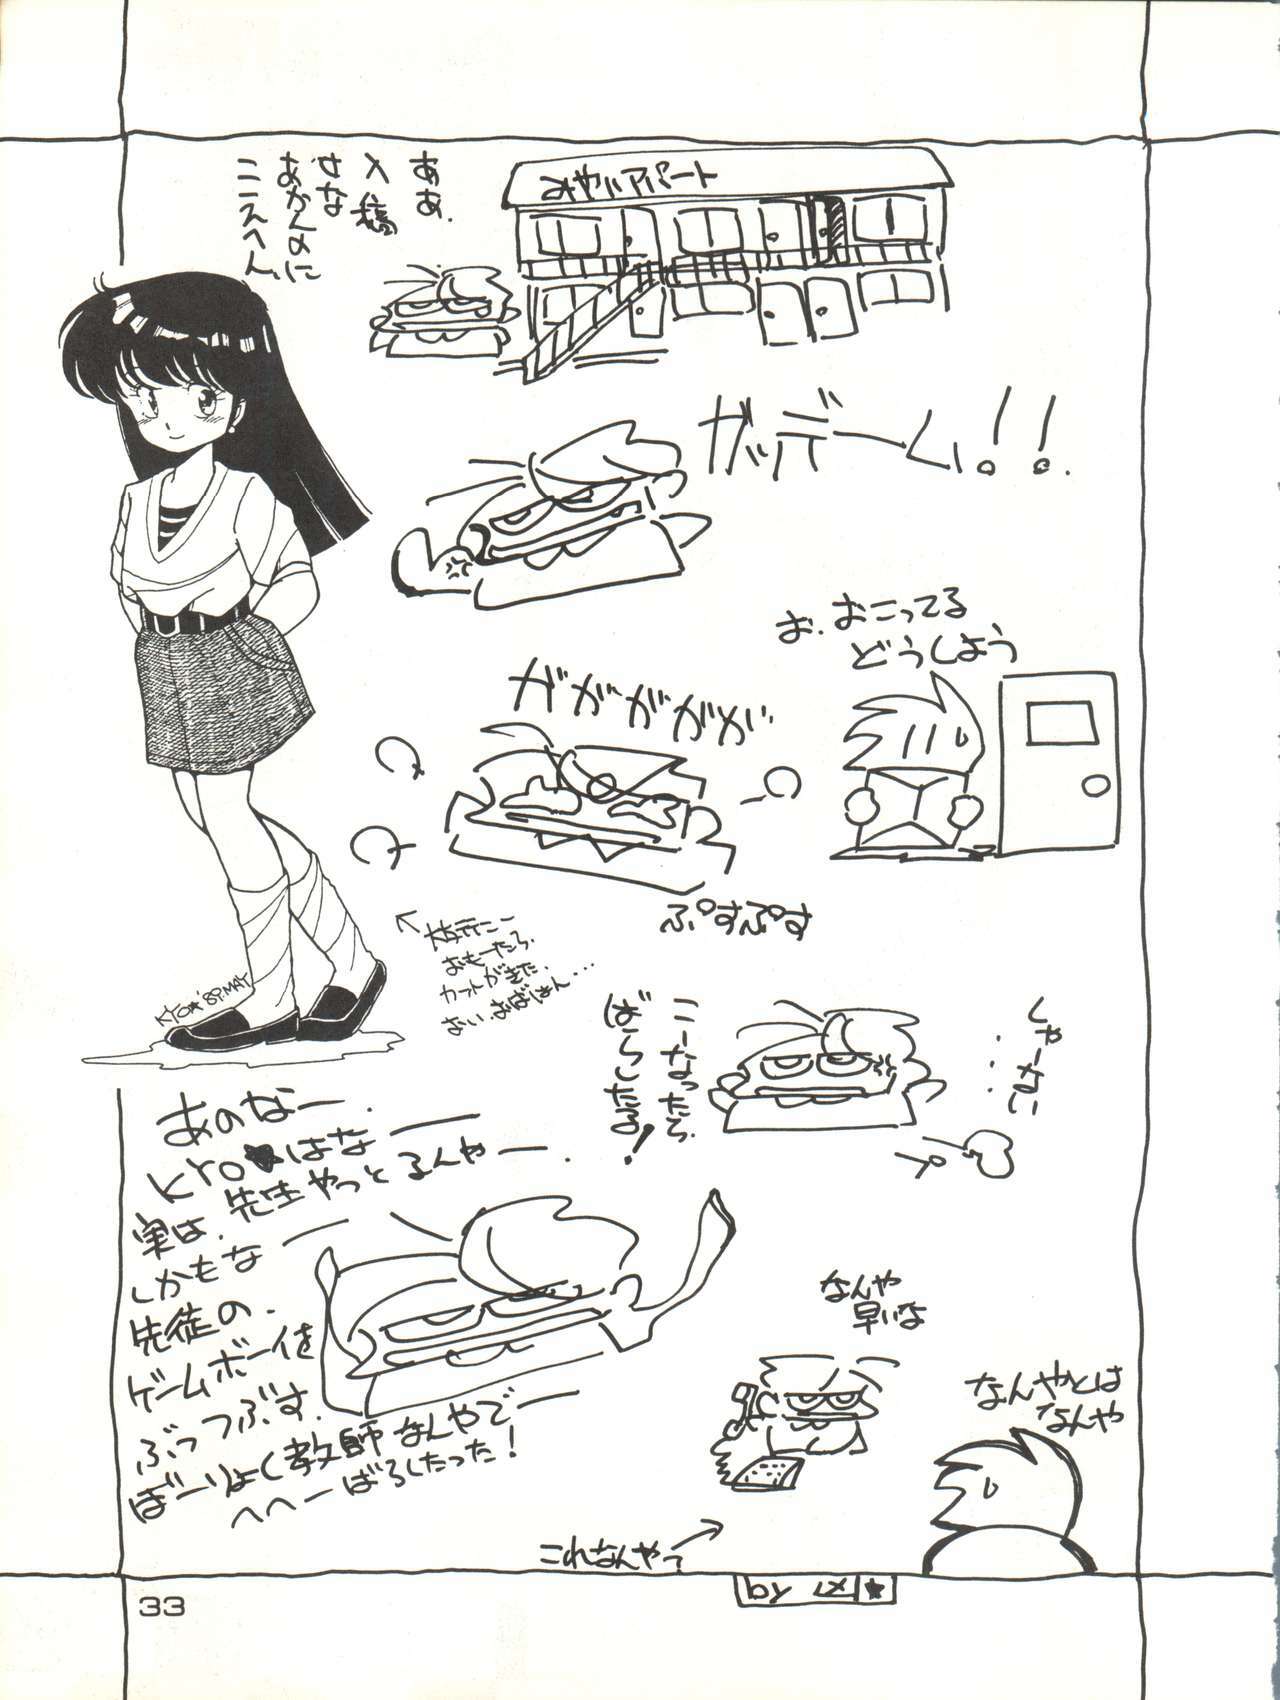 ああ、
入稿
せな
あかんのに
こえへん、
みやいアパート
ガッデーム!!
お、おこってる
どうしよう
ががががが
ぷすぷす
おもーたろ、
カットがきた、
KYO★'89.MAY
しゃーない
・・・
こーなったら、
ばらしたる!
あのなー、
KYO★はなー
実は、先生やっとるんやー、
しかもなー
先徒の、
ゲームボーイを
ぶっつぶす、
ばーりょく教師なんやでー
へへーばらしたった!
なんや
早いな
なんやとは
なんや
これなんやっ
33